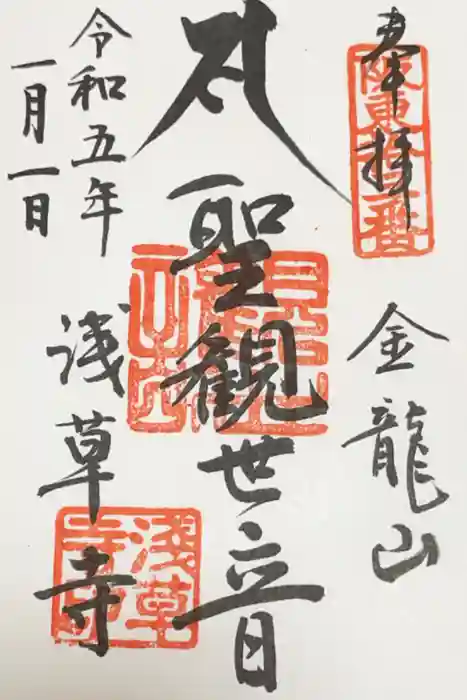 奉拝
阪東拾三番
金龍山
聖観世音
令和五年
一月一日
浅草寺
浅草